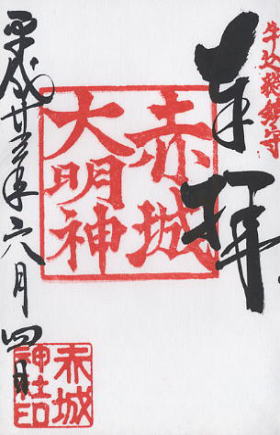 牛込総鎮守
奉拝
赤城
大明神
平成廿三年六月四日
赤城
神社印